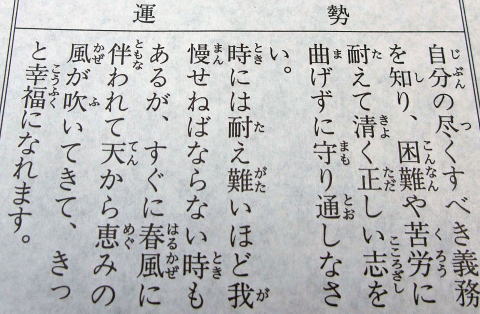 運勢
自分の尽くすべき義務
を知り、困難や苦労に
耐えて清く正しい志を
曲げずに守り通しなさ
い。
時には耐え難いほど我
慢せねばならない時も
あるが、すぐに春風に
伴われて天から恵みの
風が吹いてきて、きっ
と幸福になれます。